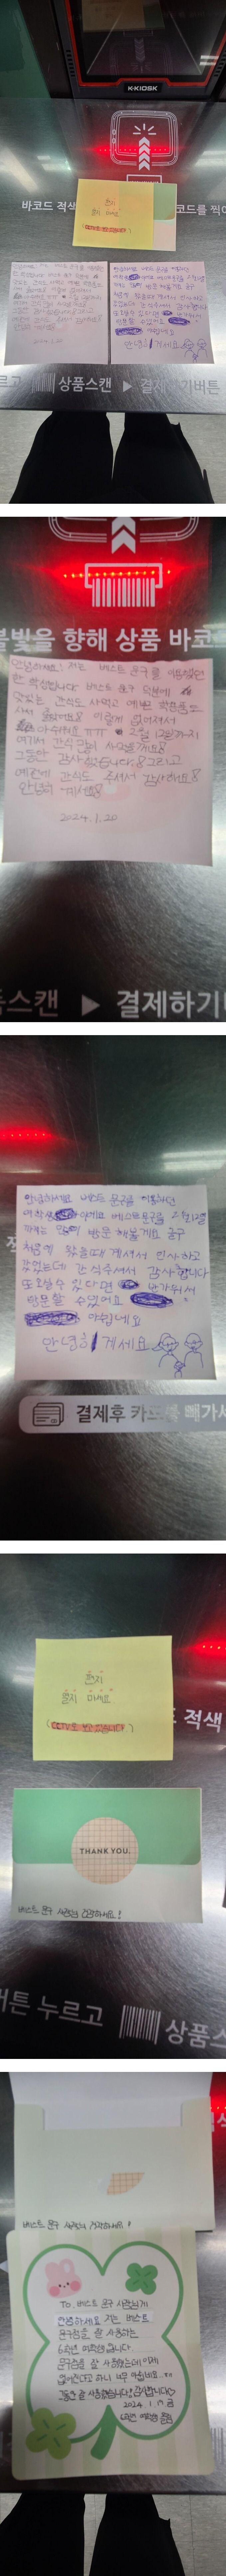 K-KIOSK
바코드 적색
코드를 찍어
편지
열지 마세요.
2024.1.20
안녕히 계세요
르고
상품스캔 ▶ 결제
기버튼
불빛을 향해 상품 바코
안녕하세요! 저는 베스트 문구를 이용했던
한 학생입니다 베스트 문구 덕분에
맛있는 간식도 사먹고 예쁜 학용품도
사서 좋았어요 이렇게 없어져서
아쉬워요 ㅠㅠ 2월 12일까지
여기서 간식 많이 사먹을게요
그동안 감사했습니다. 그리고
예전에 간식도 주셔서 감사해요
안녕히 계세요
2024.1.20
스캔 ▶ 결제하기
안녕하세요 베스트 문구를 이용하던
여학생 이에요 베스트문구를 2월12일
까지는 많이 방문 해볼게요 문구
처음에 왔을때 계셔서 인사하고
갔었는데 간식주셔서 감사합니다
또 오실수 있다면 반가워서
방문할 수있어요
아쉽네요
안녕히 계세요
결제후 카드를 빼가세
편지
열지 마세요.
적색
THANK YOU.
베스트 문구 사장님 건강하세요!
버튼 누르고
상품스
베스트 문구 사장님 건강하세요!
To. 베스트 문구 사장님께
안녕하세요 저는 베스트
문구점을 잘 사용하는
6학년 여학생 입니다.
문구점을 잘 사용했는데 이제
없어진다고 하니 너무 아쉽네요..
그동안 잘 사용했습니다. 감사합니다♡
2024. 1.
6학년 여학생